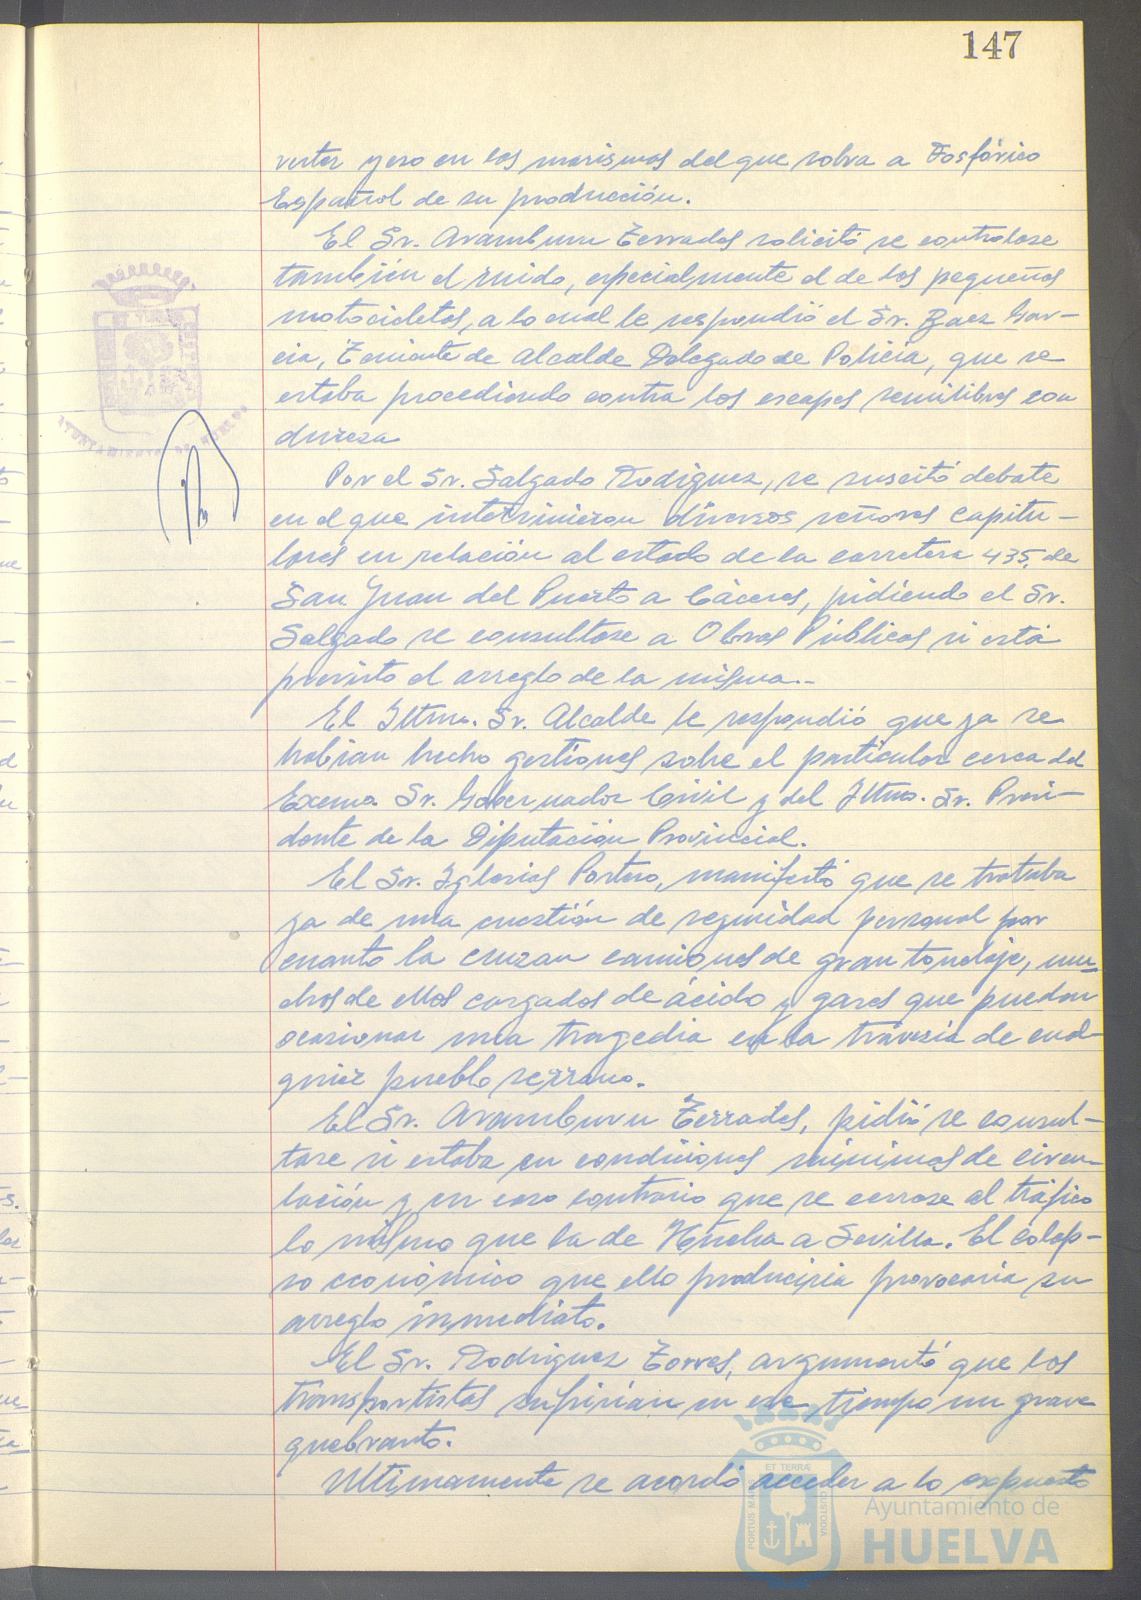 147
verter yeso en las marismas del que sobra a Fosfórico
Español de su producción.
El Sr. Aramburu Terrades solicitó se controlase
también el ruido, especialmente el de las pequeñas
motocicletas, a lo cual le respondió el Sr. Baez Gar-
cia, Teniente de Alcalde Delegado de Policía, que se
estaba procediendo contra los escapes semilibres con
dureza
Por el Sr. Salgado Rodiguez, se suscitó debate
en el que intervinieron diversos señores capitu-
lares en relación al estado de la carretera 435, de
San Juan del Puerto a Cáceres, pidiendo el Sr.
Salgado se consultase a Obras Públicas si está
previsto el arreglo de la misma.-
El Iltmo. Sr. Alcalde le respondió que ya se
habian hecho gestiones sobre el particular cerca del
Excmo. Sr. Gobernador Civil y del Iltmo. Sr. Presi-
dente de la Diputación Provincial.
El Sr. Iglesias Portero, manifestó que se trataba
ya de una cuestión de seguridad personal por
cuanto la cruzan camiones de gran tonelaje, mu-
chos de ellos cargados de ácido y gases que puedan
ocasionar una tragedia en la travesía de cual-
quier pueblo serrano.
El Sr. Aramburu Terrades, pidió se consul-
tase si estaba en condiciones mínimas de circu-
lación y en caso contrario que se cerrase al tráfico
lo mismo que la de Huelva a Sevilla. El colap-
so económico que ello produciria provocaria su
arreglo inmediato.
El Sr. Rodriguez Torres, argumentó que los
transportistas sufririan en ese tiempo un grave
quebranto.
Ultimamente se acordó acceder a lo expuesto
AYUNTAMIENTO DE HUELVA
PORTUS MARIS ET TERRÆ CUSTODIA
Ayuntamiento de
HUELVA